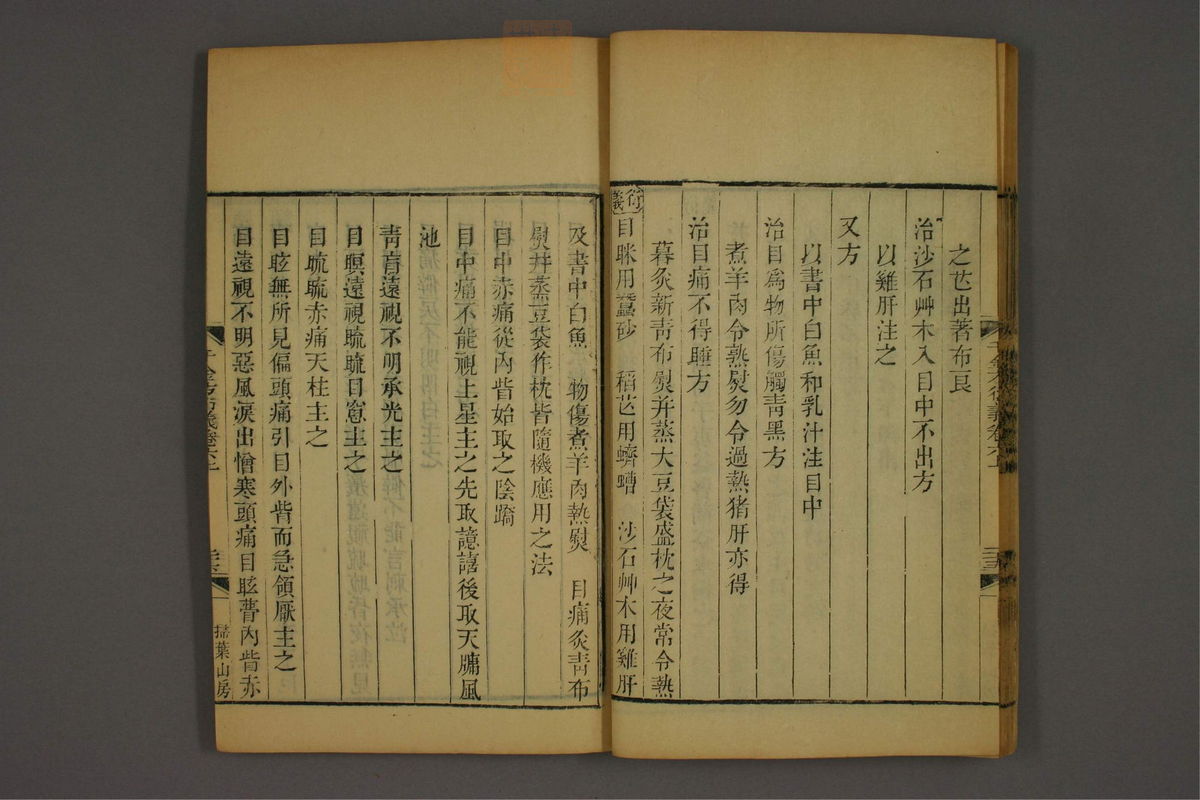 之芯出著布艮
治沙石艸木入目中不出方
以雞肝注之
又方
以書中白魚和乳汁注目中
治目爲物所傷觸靑黑方
煮羊肉令熟熨勿令過熱猪肝亦得
治目痛不得睡方
暮炙新靑布熨幷蒸大豆袋盛枕之夜常令熱
衍義 目眯用蠶砂 稻芒用蠐螬 沙石艸木用雞肝
及書中白魚 物傷煮羊肉熱熨 目痛炙靑布
熨幷蒸豆袋作枕皆隨機應用之法
目中赤痛從內眥始取之陰蹻
目中痛不能視上星主之先取譩譆後取天牖風
池
靑盲遠視不明承光主之
目瞑遠視䀮䀮目窻主之
目䀮䀮赤痛天柱主之
目眩無所見偏頭痛引目外眥而急頷厭主之
目遠視不明惡風淚出憎寒頭痛目眩瞢內眥赤
千金方衍義卷六上
掃葉山房